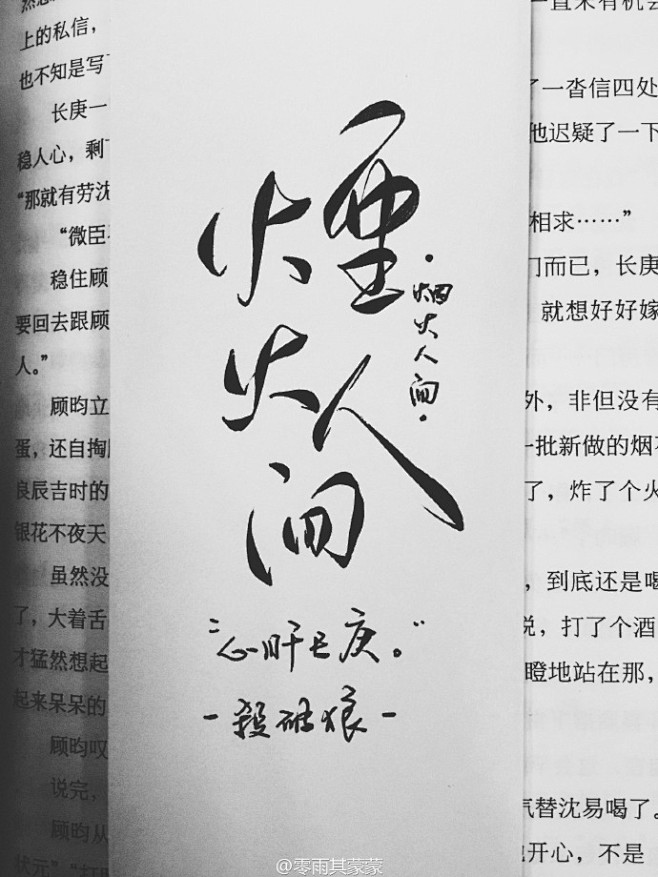 然
上的私信，
也不知是写
长庚一
稳人心，剩
“那就有劳沈
“微臣
稳住顾
要回去跟顾
人。”
顾昀立
蛋，还自掏
良辰吉时的
银花不夜天
虽然没
了，大着舌
才猛然想起
起来呆呆的
顾昀叹
说完，
顾昀从
煙
火人
间
·烟火人间·
“心肝长庚。”
-殺破狼-
一直未有机会
了一沓信四处
他迟疑了一下
相求……”
门而已，长庚
就想好好嫁
外，非但没有
一批新做的烟
了，炸了个火
，到底还是喝
说，打了个酒
瞪地站在那，
气替沈易喝了。
开心，不是
@零雨其蒙蒙